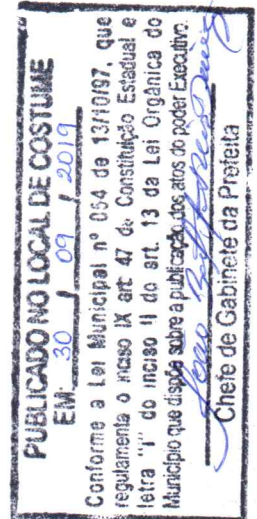 PUBLICADO NO LOCAL DE COSTUME
EM: 30 / 09 / 2019
Conforme a Lei Municipal nº 054 de 13/10/97, que
regulamenta o inciso IX art 47 da Constituição Estadual e
letra "j" do inciso II do art. 13 da Lei Orgânica do
Município que dispõe sobre a publicação dos atos do poder Executivo.
Chefe de Gabinete da Prefeita